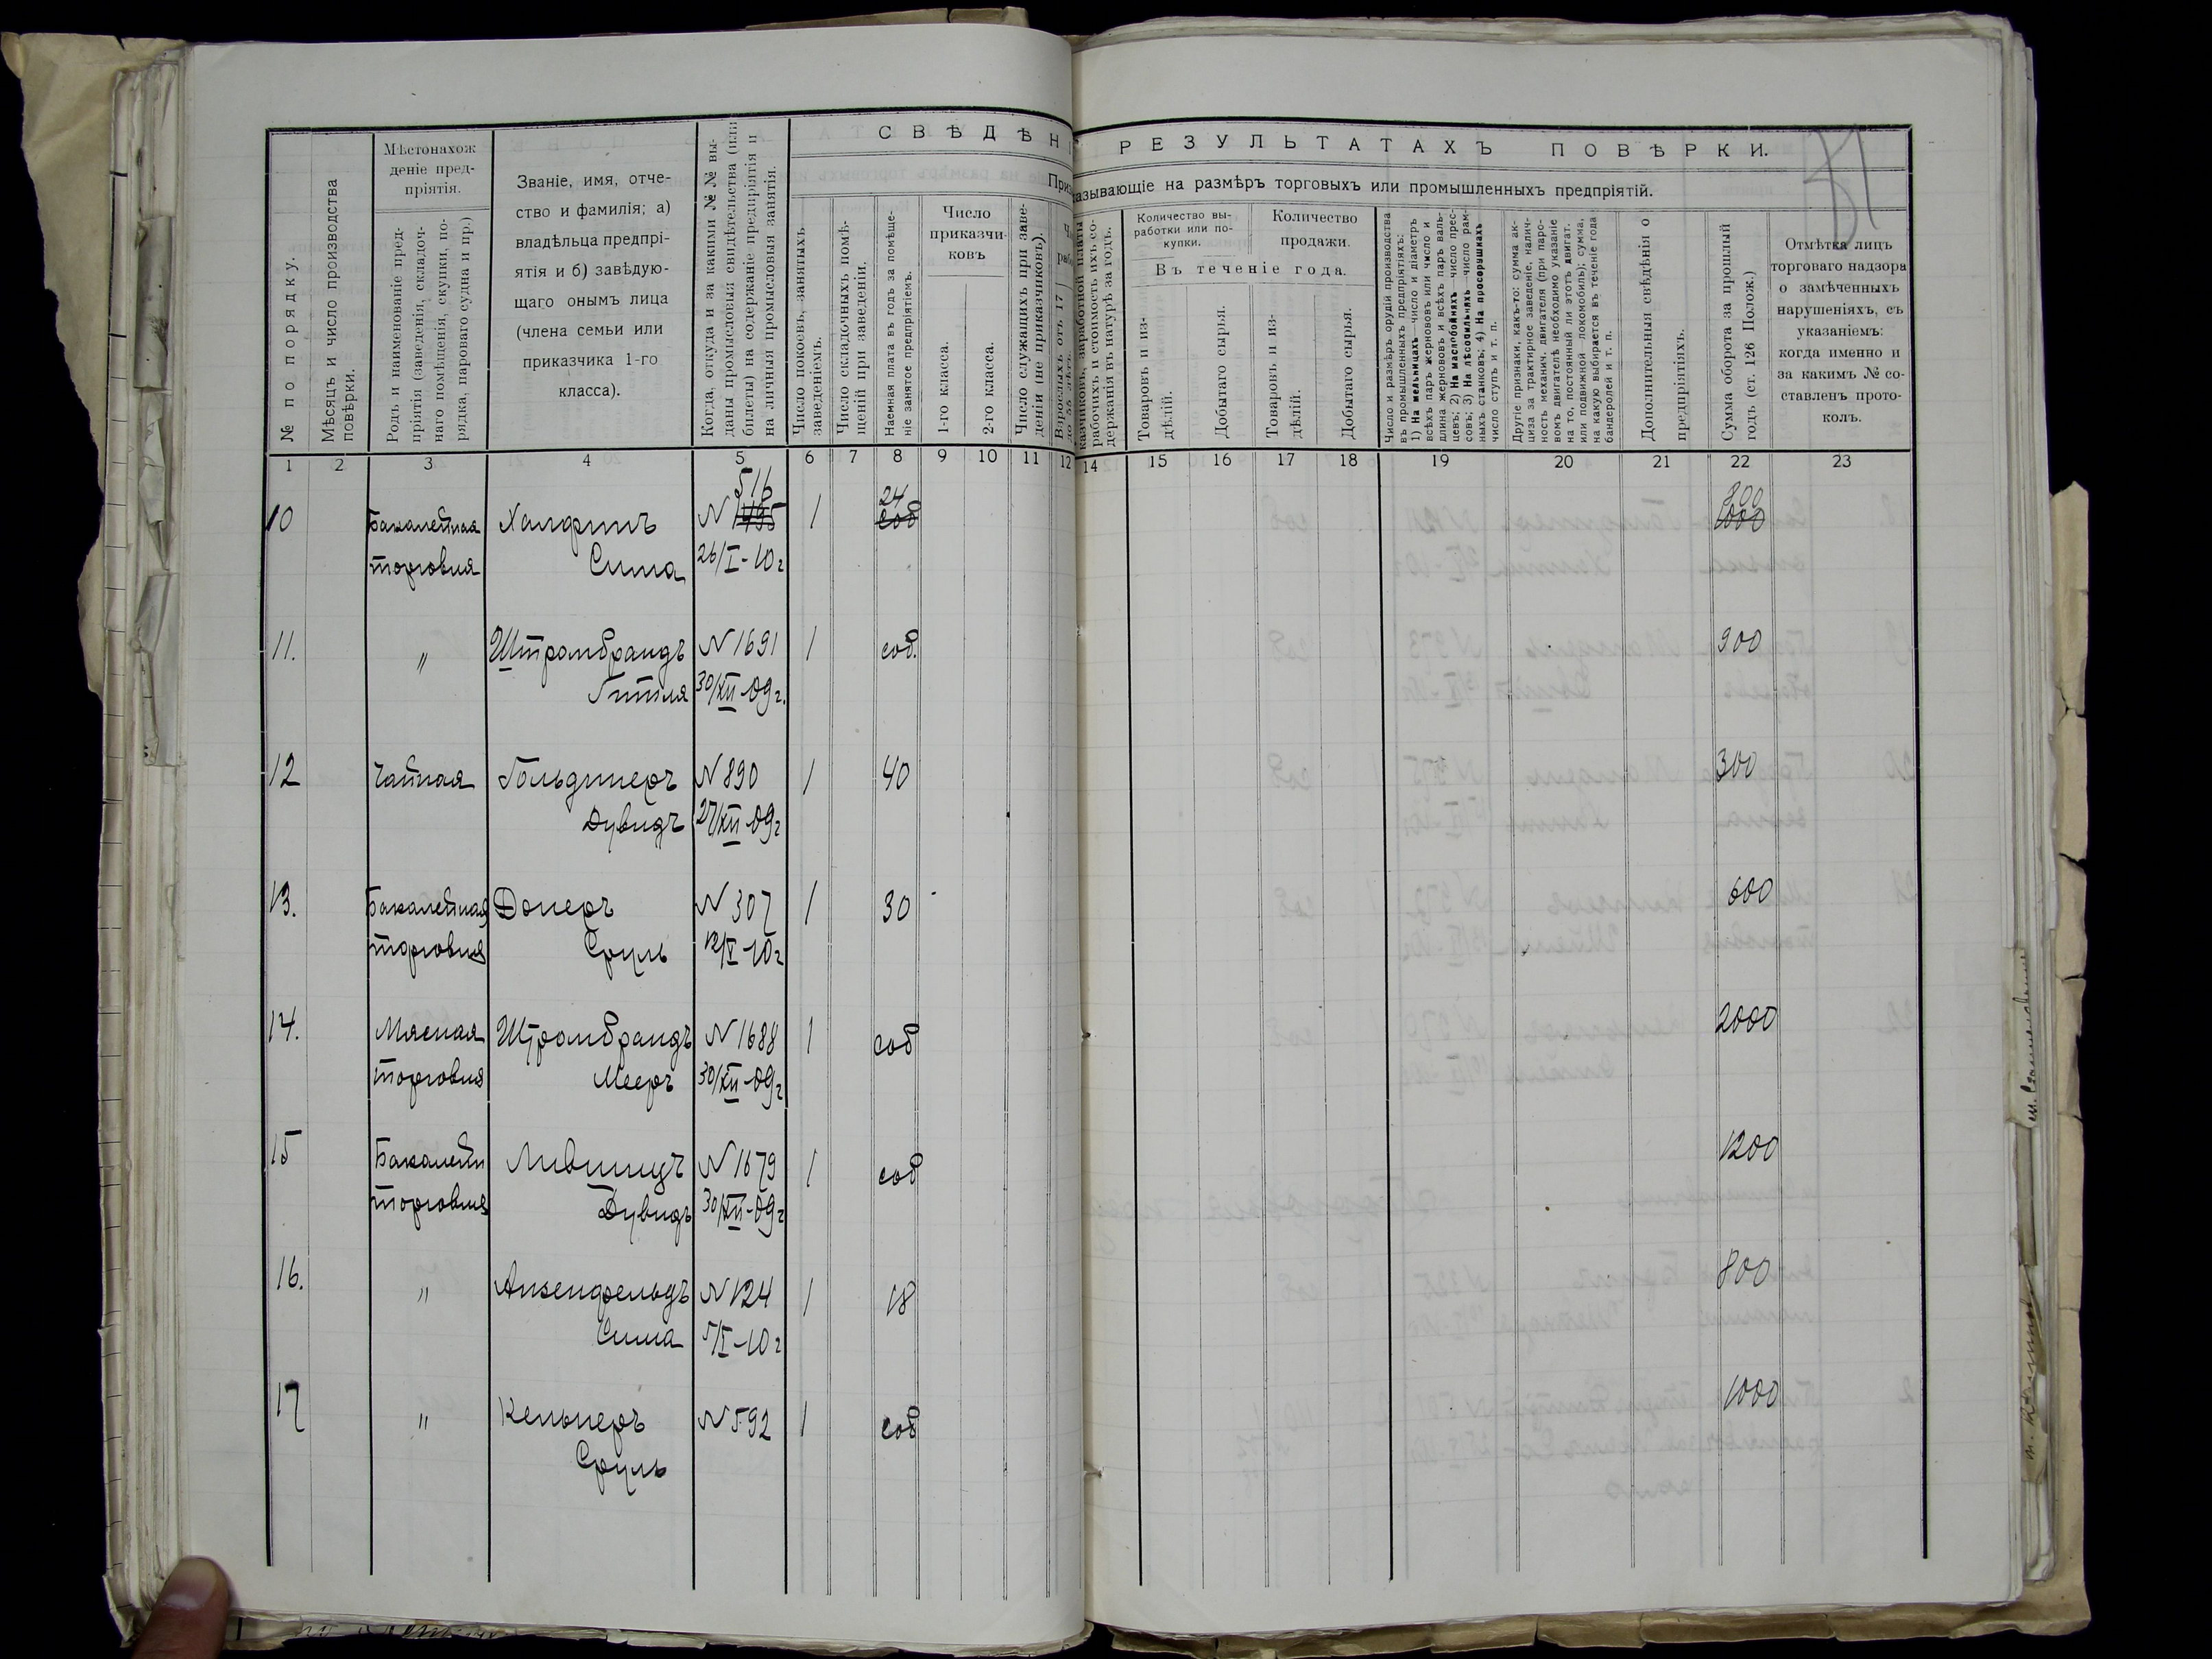 СВѢДѢНІ
РЕЗУЛЬТАТАХЪ ПОВѢРКИ.
Приз
казывающіе на размѣръ торговыхъ или промышленныхъ предпріятій.
№ по порядку.
Мѣсяцъ и число производства
повѣрки.
Мѣстонахож
деніе пред-
пріятія.
Родъ и наименованіе пред-
пріятія (заведенія, складоч-
наго помѣщенія, скупки, по-
рядка, пароваго судна и пр.)
Званіе, имя, отче-
ство и фамилія; а)
владѣльца предпрі-
ятія и б) завѣдую-
щаго онымъ лица
(члена семьи или
приказчика 1-го
класса).
Когда, откуда и за какими №№ вы-
даны промысловыя свидѣтельства (или
билеты) на содержаніе предпріятія и
на личныя промысловыя занятія.
Число покоевъ, занятыхъ
заведеніемъ.
Число складочныхъ помѣ-
щеній при заведеніи.
Наемная плата въ годъ за помѣще-
ніе занятое предпріятіемъ.
Число
приказчи-
ковъ
1-го класса.
2-го класса.
Число служащихъ при заве-
деніи (не приказчиковъ).
Взрослыхъ отъ 17
до 55 лѣтъ.
казчиковъ, заработной платы
рабочихъ и стоимость ихъ со-
держанія въ натурѣ за годъ.
Количество вы-
работки или по-
купки.
Количество
продажи.
Въ теченіе года.
Товаровъ и из-
дѣлій.
Добытаго сырья.
Товаровъ и из-
дѣлій.
Добытаго сырья.
Число и размѣръ орудій производства
въ промышленныхъ предпріятіяхъ:
1) На мельницахъ—число и діаметръ
всѣхъ паръ жернововъ или число и
длина жернововъ и всѣхъ паръ валь-
цевъ; 2) На маслобойняхъ число прес-
совъ; 3) На лѣсопильняхъ число рам-
ныхъ станковъ; 4) На просорушкахъ
число ступъ и т. п.
Другіе признаки, какъ-то: сумма ак-
циза за трактирное заведеніе, налич-
ность механич. двигателя (при паро-
вомъ двигателѣ необходимо указаніе
на то, постоянный ли этотъ двигат.
или подвижной—локомобиль); сумма,
на какую выбирается въ теченіе года
бандеролей и т. п.
Дополнительныя свѣдѣнія о
предпріятіяхъ.
Сумма оборота за прошлый
годъ (ст. 126 Полож.)
Отмѣтка лицъ
торговаго надзора
о замѣченныхъ
нарушеніяхъ, съ
указаніемъ:
когда именно и
за какимъ № со-
ставленъ прото-
колъ.
1 2 3 4 5 6 7 8 9 10 11 12 14 15 16 17 18 19 20 21 22 23
516 24 800
10 Бакалейная Халфинъ N 1495 1 соб 1000
торговля Сима 26/I-10 г
11. " Штромбрандъ N 1691 1 соб. 900
Гитля 30/XII-09 г.
12 Чайная Гольдинеръ N 890 1 40 300
Дувидъ 27/XII-09 г
13. Бакалейная Донеръ N 307 1 30 600
торговля Сруль 12/I-10 г
14. Мясная Штромбрандъ N 1688 1 соб 2000
торговля Мееръ 30/XII-09 г
15 Бакалейн Лившицъ N 1679 1 соб 1200
торговля Дувидъ 30/XII-09 г
16. " Аизенфельдъ N 124 1 18 800
Сима 5/I-10 г
17 " Кельнеръ N 592 1 соб 1000
Сруль